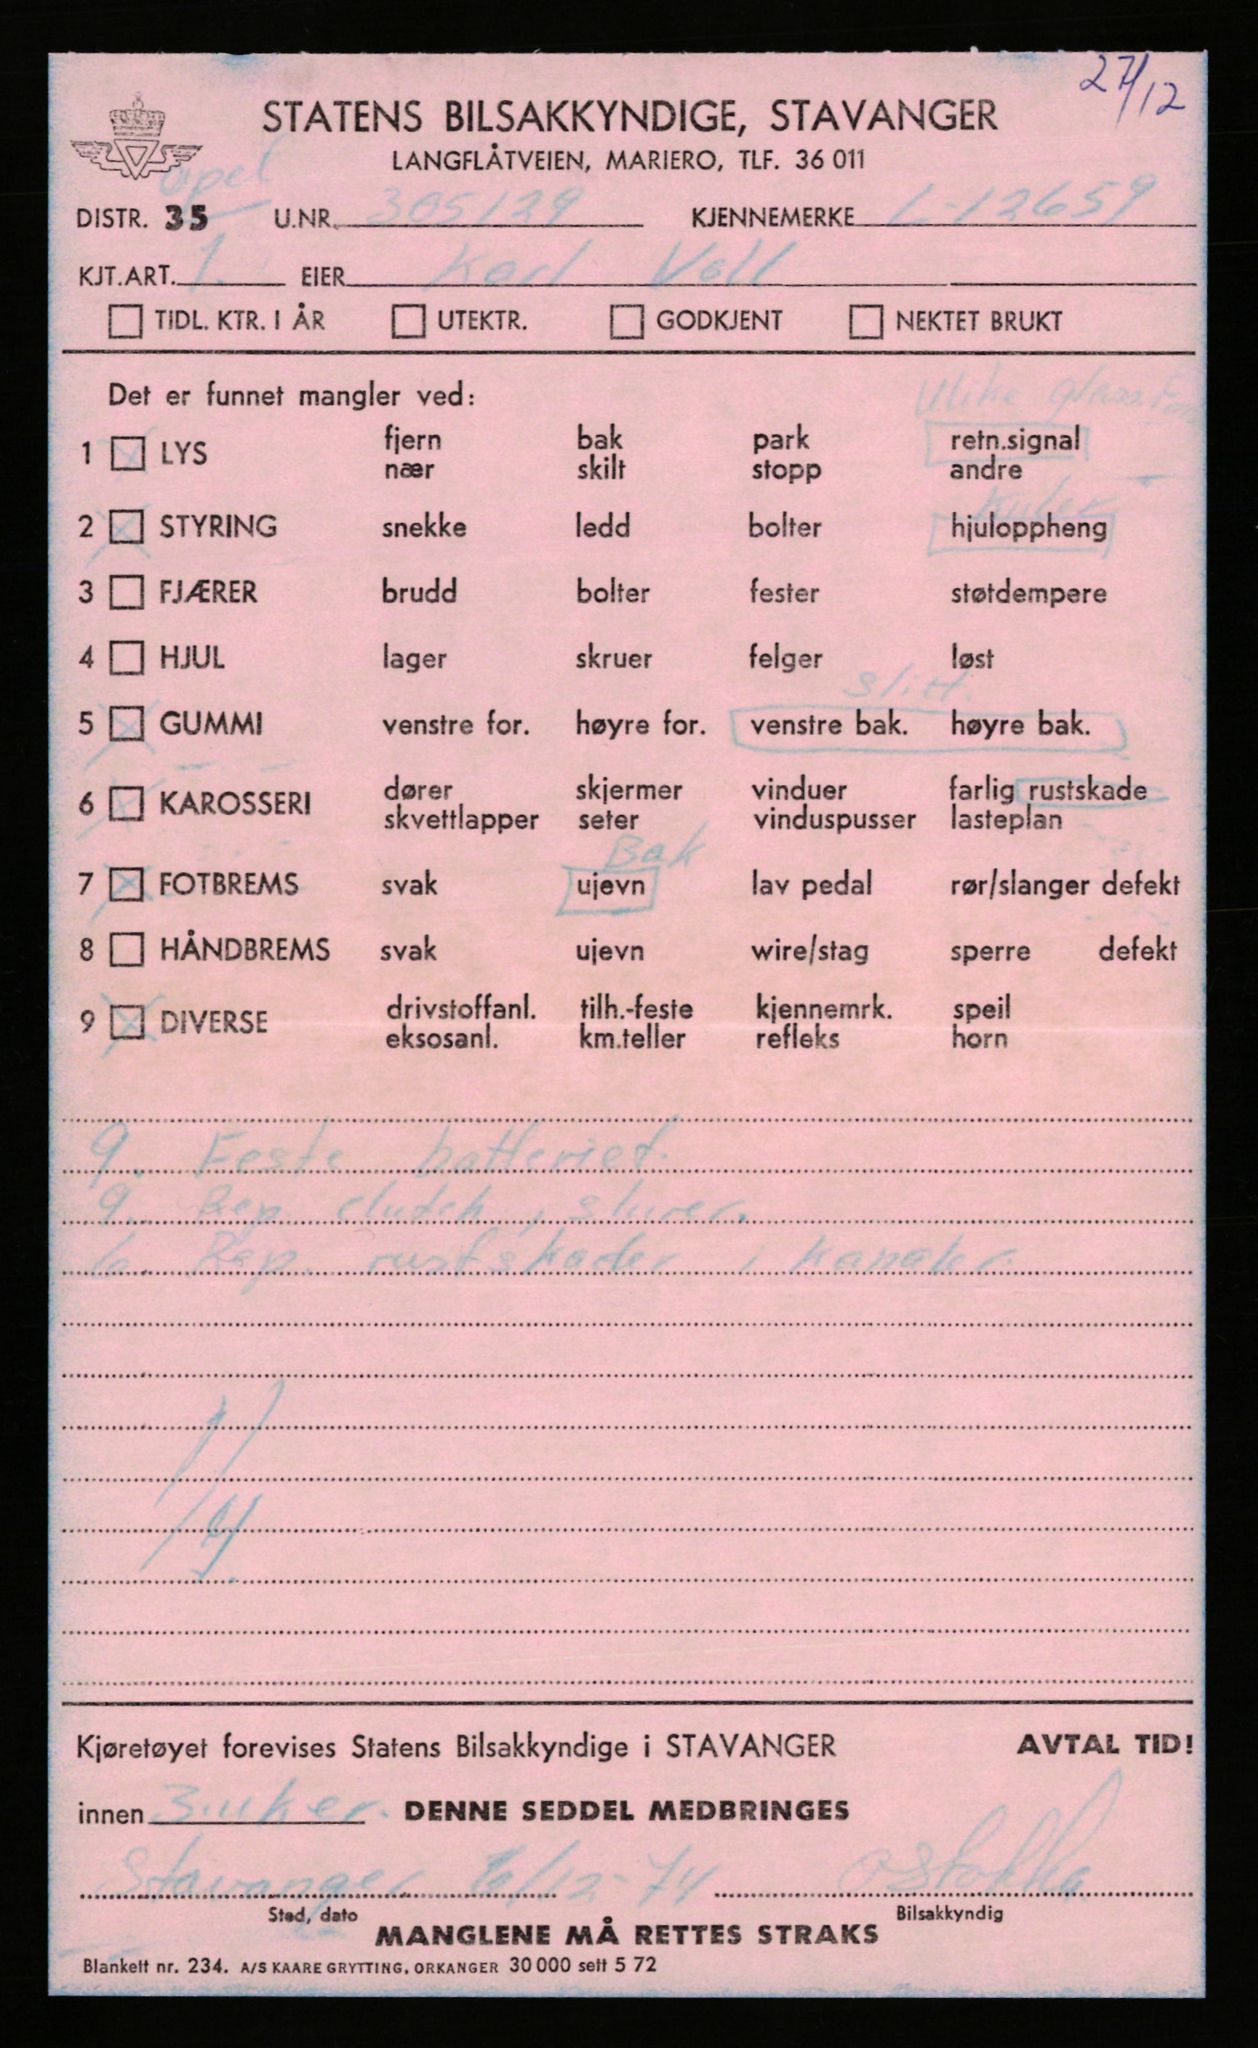 27/12
STATENS BILSAKKYNDIGE, STAVANGER
LANGFLÅTVEIEN, MARIERO, TLF. 36 011
Opel
DISTR. 35 U.NR. 305129 KJENNEMERKE L-12659
KJT.ART. 1. EIER Karl Voll
TIDL. KTR. I ÅR UTEKTR. GODKJENT NEKTET BRUKT
Det er funnet mangler ved: Ulike glass.
1 LYS fjern bak park retn.signal
nær skilt stopp andre
Kuler
2 STYRING snekke ledd bolter hjuloppheng
3 FJÆRER brudd bolter fester støtdempere
4 HJUL lager skruer felger løst
slitt.
5 GUMMI venstre for. høyre for. venstre bak. høyre bak.
6 KAROSSERI dører skjermer vinduer farlig rustskade
skvettlapper seter vinduspusser lasteplan
Bak
7 FOTBREMS svak ujevn lav pedal rør/slanger defekt
8 HÅNDBREMS svak ujevn wire/stag sperre defekt
9 DIVERSE drivstoffanl. tilh.-feste kjennemrk. speil
eksosanl. km.teller refleks horn
9. Feste batteriet.
9. Rep clutch, slurer.
6. Rep. rustskader i kanaler.
Kjøretøyet forevises Statens Bilsakkyndige i STAVANGER AVTAL TID!
innen 3.uker. DENNE SEDDEL MEDBRINGES
Stavanger 6/12-74 O Stokka
Sted, dato Bilsakkyndig
MANGLENE MÅ RETTES STRAKS
Blankett nr. 234. A/S KAARE GRYTTING, ORKANGER 30 000 sett 5 72